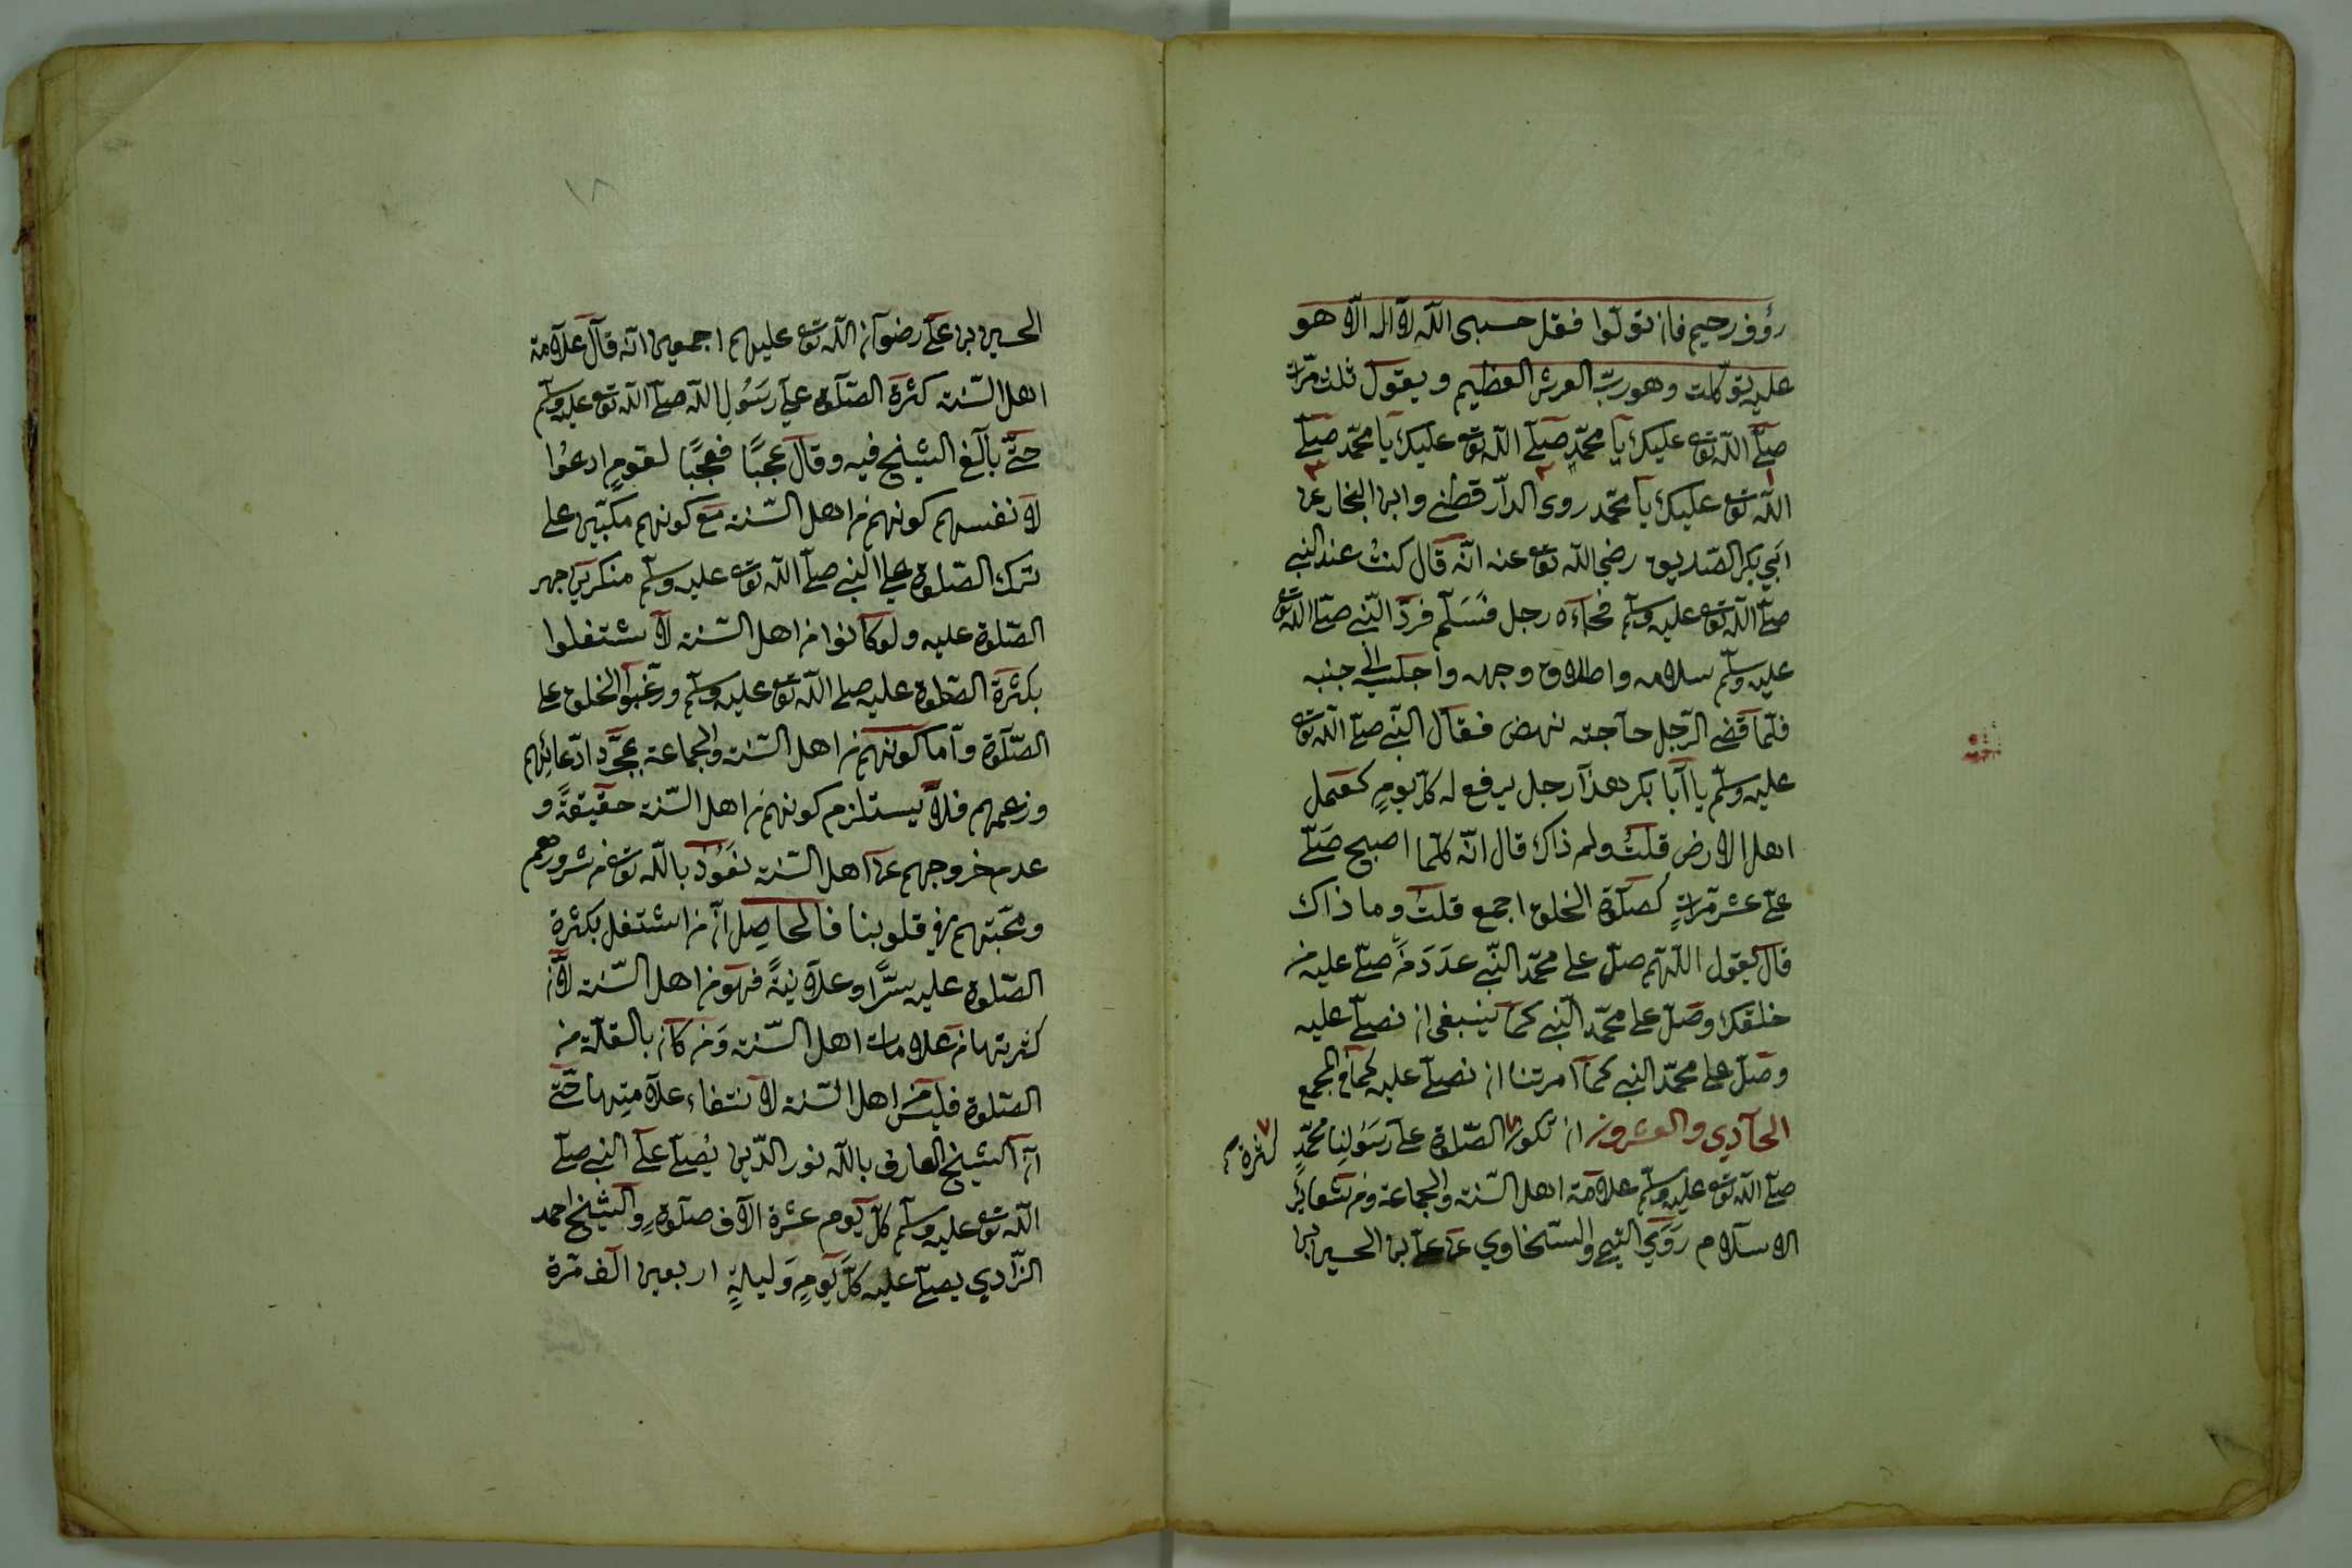 رؤف رحيم فان تولّوا فقل حسبى الله لا اله الّا هو
عليه توكّلت وهو ربّ العرش العظيم ويقول ثلث مرّات
صلّى الله تع عليك يا محمّد صلّى الله تع عليك يا محمّد صلّى
الله تع عليك يا محمّد روى الدار قطنى وابن النجار عن
ابى بكر الصّديق رضى الله تع عنه انّه قال كنتُ عند النبى
صلّى الله تع عليه وسلّم فجاءه رجل فسَلّم فردّ النّبى صلّى الله تع
عليه وسلّم سلامه واطلاق وجهه واجلس الى جنبه
فلمّا قضى الرّجل حاجته نهض فقال النّبى صلّى الله تع
عليه وسلّم يا ابا بكر هذا رجل يرفع له كلّ يومٍ كعمل
اهل الارض قلتُ ولم ذاك قال انّه كلّما اصبح صَلّى
علىّ عشر مرّاتٍ كصلوة الخلق اجمع قلتُ وما ذاك
قال يقول اللّهم صلّ على محمّد النّبى عدَدَ مَن صلّى عليه من
خلقك وصَلّ على محمّد النّبى كما ينبغى ان نصلّى عليه
وصَلّ على محمّد النبى كما امرتنا ان نصلّى عليه كما فى المجمع
الحادى والعشرون ان تكون الصّلوة على رسَولنا محمّدٍ
كثرة
صلّى الله تع عليه وسلّم علامة اهل السّنة والجماعة ومن شعائر
الاسلام رَوَى التيمى والسّخاوي عن على بن الحسين بن
١٨
الحسين بن على رضوان الله تع عليهم اجمعين انّه قال علامة
اهل السّنة كثرة الصّلوة على رسَولِ الله صلّى الله تع عليه وسلّم
حتّى بالغ الشيخ فيه وقال عجبًا فعجبًا لقومٍ ادعوا
لانفسهم كونهم من اهل السّنة مع كونهم مكبّين على
ترك الصّلوة على النبى صلّى الله تع عليه وسلّم منكرين جهر
الصّلوة عليه ولو كانوا من اهل السّنة لاشتغلوا
بكثرة الصّلوة عليه صلى الله تع عليه وسلّم ورغّبوا الخلق على
الصّلوة وامّا كونهم من اهل السّنة والجماعة بمجرّد ادّعائهم
وزعمهم فلا يستلزم كونهم من اهل السّنة حقيقةً و
عدم خروجهم عن اهل السّنة نعوذ بالله تع من شرورهم
ومحبّتهم فى قلوبنا فالحاصِل ان من اشتغل بكثرة
الصّلوة عليه سرًّا وعلانيةً فهو من اهل السّنة لانّ
كثرتها من علامات اهل السّنة ومن كان بالقلّة من
الصّلوة فليس من اهل السّنة لانتفاء علامتِها حتّى
انّ الشيخ العارف بالله نور الدّين يُصلّى على النبى صلّى
الله تع عليه وسلّم كلّ يوم عشرة الاف صلوةٍ والشيخ احمد
الزّادي يصلّى عليه كلّ يومٍ وَليلةٍ اربعين الف مّرة